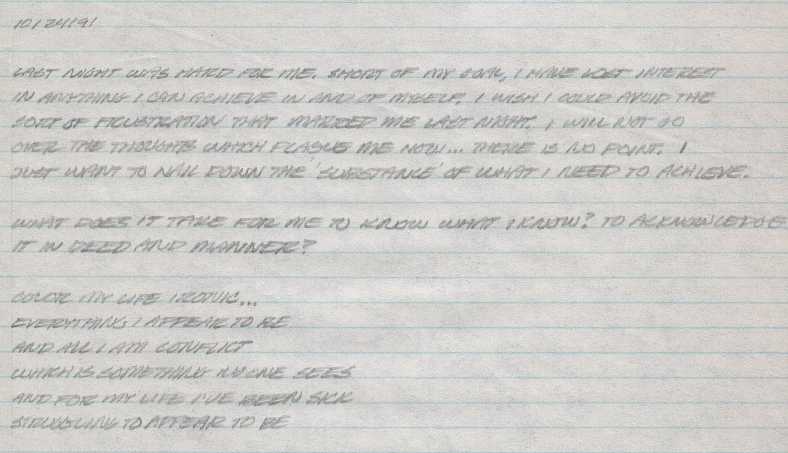 10/24/91
LAST NIGHT WAS HARD FOR ME. SHORT OF MY GOAL, I HAVE LOST INTEREST
IN ANYTHING I CAN ACHIEVE IN AND OF MYSELF. I WISH I COULD AVOID THE
SORT OF FRUSTRATION THAT MARRED ME LAST NIGHT. I WILL NOT GO
OVER THE THOUGHTS WHICH PLAGUE ME NOW... THERE IS NO POINT. I
JUST WANT TO NAIL DOWN THE 'SUBSTANCE' OF WHAT I NEED TO ACHIEVE.
WHAT DOES IT TAKE FOR ME TO KNOW WHAT I KNOW? TO ACKNOWLEDGE
IT IN DEED AND MANNER?
COLOR MY LIFE IRONIC...
EVERYTHING I APPEAR TO BE
AND ALL I AM CONFLICT
WHICH IS SOMETHING NO ONE SEES
AND FOR MY LIFE I'VE BEEN SICK
STRUGGLING TO APPEAR TO BE